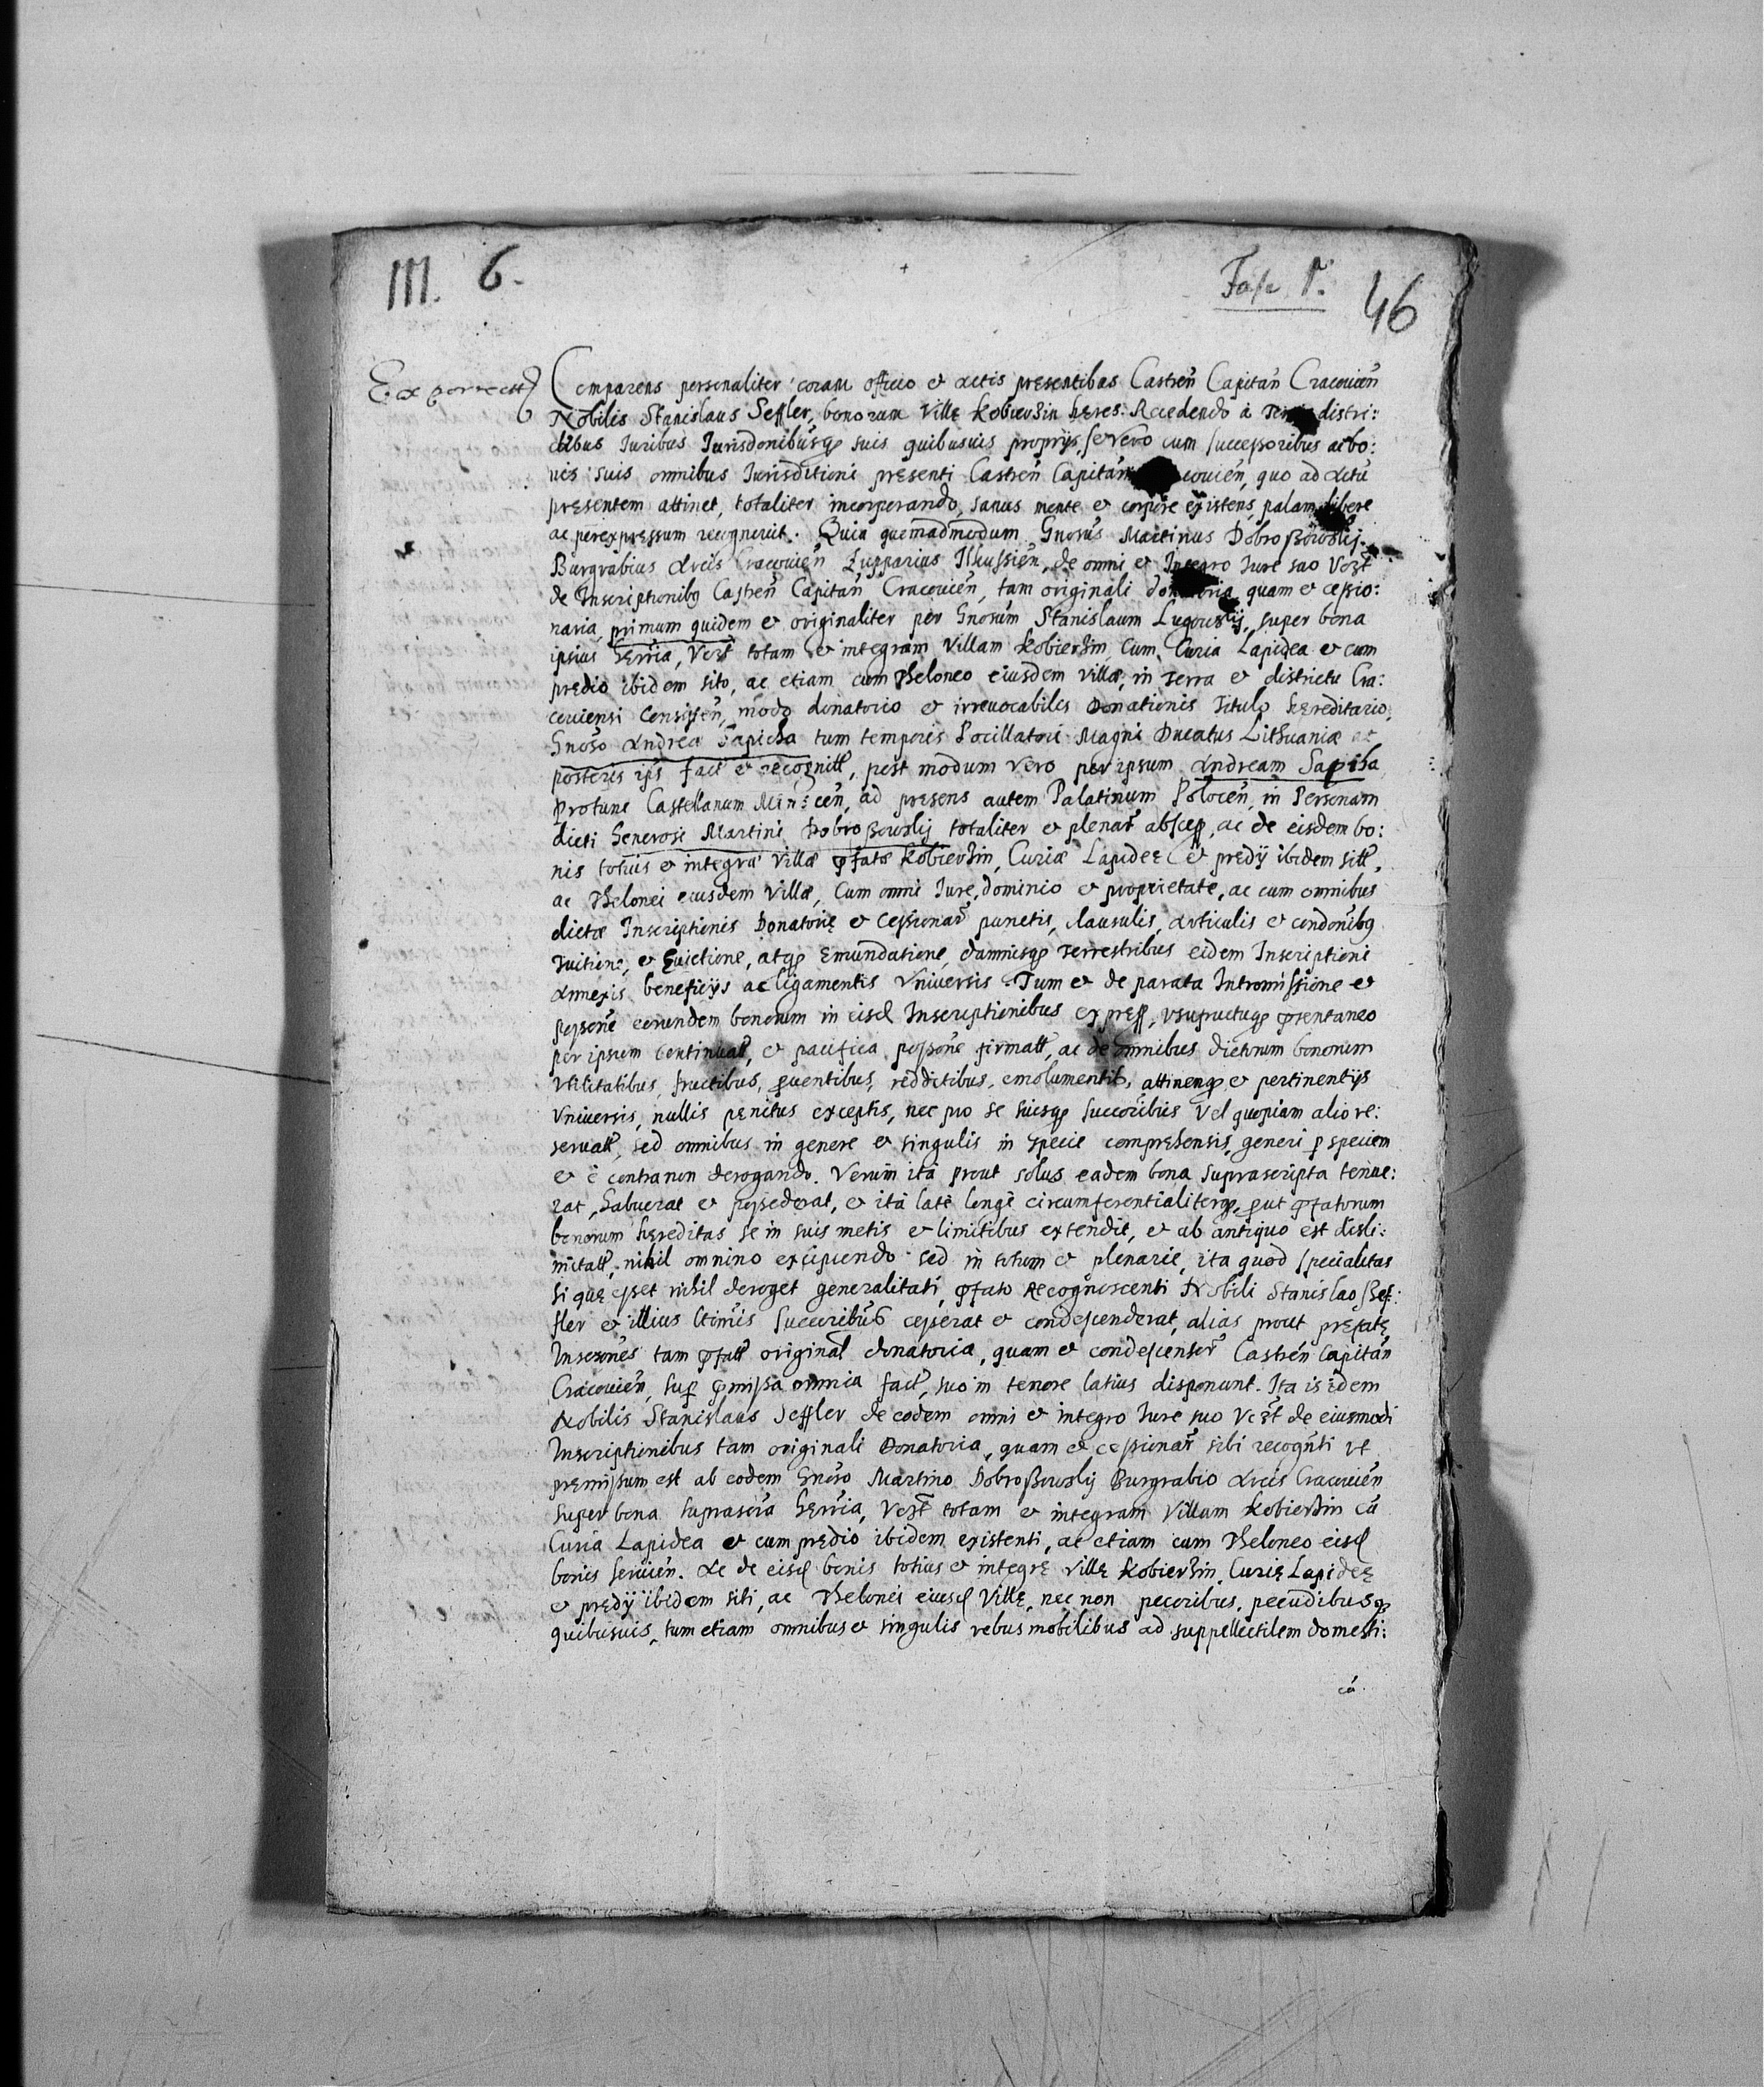 III. 6.
Fasc 1.
46
Ex correct
Comparens personaliter coram officio et actis presentibus Castreñ Capitañ Cracovieñ
Nobilis Stanislaus Seffler, bonorum Villę Kobierzin hęres. Recedendo à distri:
ctibus Iuribus Iurisdonibusq suis quibusuis proprijs, se vero cum successoribus ac bo:
nis suis omnibus Iurisditioni pręsenti Castreñ Capitañ couieñ, quo ad actũ
pręsentem attinet, totaliter incorporando, sanus mente et corpore existens, palam libere
ac per expressum recognouit. Quia quemadmodum Gnosus Martinus Dobroßowskij
Burgrabius Arcis Cracouieñ Zupparius Ilkussieñ, de omni et Integro Iure suo Vezt
de Inscriptionibq Castreñ Capitañ Cracouieñ, tam originali quam et cessio:
naria, primum quidem et originaliter per Gnosum Stanislaum Lugowskij, super bona
ipsius hęrria, Vezt totam et integram Villam Kobierzin, Cum Curia Lapidea et cum
prędio ibidem sito, ac etiam cum Theloneo eiusdem villæ, in terra et districtu Cra:
couiensi Consisteñ, modo donatorio et irreuocabilis Donationis titulo hęreditario,
Gnoso Andreæ Sapieha tum temporis Pocillatori Magni Ducatus Lithuaniæ et
posteris ijs fact et recognitt, post modum vero per ipsum Andream Sapieha
protunc Castellanum Minsceñ, ad pręsens autem Palatinum Poloceñ, in Personam
dicti Generosi Martini Dobroßowskij totaliter et plenar , ac de eisdem bo:
nis totius et integræ villæ pfatæ Kobierzin, Curiæ Lapideę et prędij ibidem sitt,
ac Thelonei eiusdem Villæ, Cum omni Iure, dominio et proprietate, ac cum omnibus
dictæ Inscriptionis Donatorię et Cessionar punctis, clausulis, articulis et condonibq
tuitione, et Euictione, atq Emundatione, damnisq terrestribus eidem Inscriptioni
Annexis beneficijs ac ligamentis Vniuersis. Tum et de parata Intromissione et
possone eorundem bonorum in eisd Inscriptionibus express, vsufructuq pręsentaneo
per ipsum continuatt, et pacifica possone firmatt, ac de omnibus dictorum bonorum
vtilitatibus, fructibus, puentibus, redditibus, emolumentis, attinenq et pertinentijs
Vniuersis, nullis penitus exceptis, nec pro se suisq succoribus vel quopiam alio re:
seruatt, sed omnibus in genere et singulis in specie comprehensis, generi p speciem
et è contra non derogando. Verum ità prout solus eadem bona suprascripta tenue:
rat, habuerat et possederat, et ità late longè circumferentialiterq, put pfatorum
bonorum hęreditas se in suis metis et limitibus extendit, et ab antiquo est disli:
mitatt, nihil omnino excipiendo sed in totum et plenarie, ita quod specialitas
si quę esset nihil deroget generalitati, pfato Recognoscenti Nobili Stanislao Sef:
fler et illius ltimis succoribus cesserat et condescenderat, alias prout pręfatę
Inscrones tam pfatt original donatoria, quam et condescensor Castreñ Capitañ
Cracouieñ, sup pmissa omnia fact, suo in tenore latius disponunt. Ita is idem
Nobilis Stanislaus Seffler de eodem omni et integro Iure suo Vezt de eiusmodi
Inscriptionibus tam originali Donatoria, quam et cessionar sibi recognti vt
pręmissum est ab eodem Gnoso Martino Dobroßowskij Burgrabio Arcis Cracouieñ
super bona suprascra hęrria, Vezt totam et integram Villam Kobierzin cũ
Curia Lapidea et cum prędio ibidem existenti, ac etiam cum Theloneo eisd
bonis seruieñ. Ac de eisd bonis totius et integrę villę Kobierzin, Curię Lapideę
et prędij ibidem siti, ac Thelonei eiusd Villę, nec non pecoribus, pecudibusq
quibusuis, tum etiam omnibus et singulis rebus mobilibus ad suppellectilem domesti:
cã